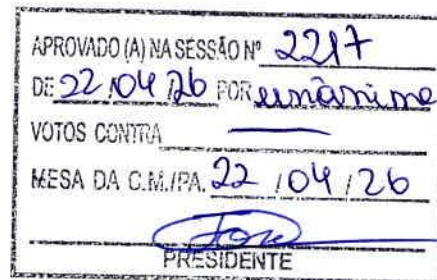 APROVADO (A) NA SESSÃO Nº 2217
DE 22/04/26 POR unânime
VOTOS CONTRA
MESA DA C.M./PA. 22/04/26
PRESIDENTE